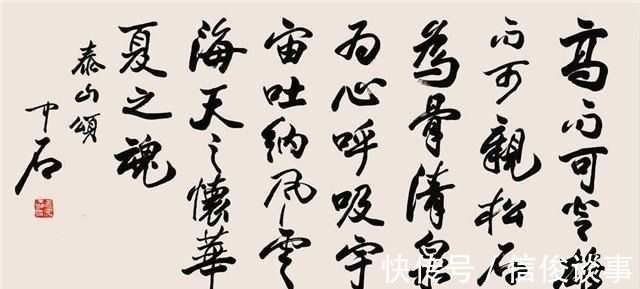 高而可登雄
而可親松石
為骨清泉
为心呼吸宇
宙吐納风雲
海天之懷華
夏之魂
泰山頌
中石
快传号/信俊谈事